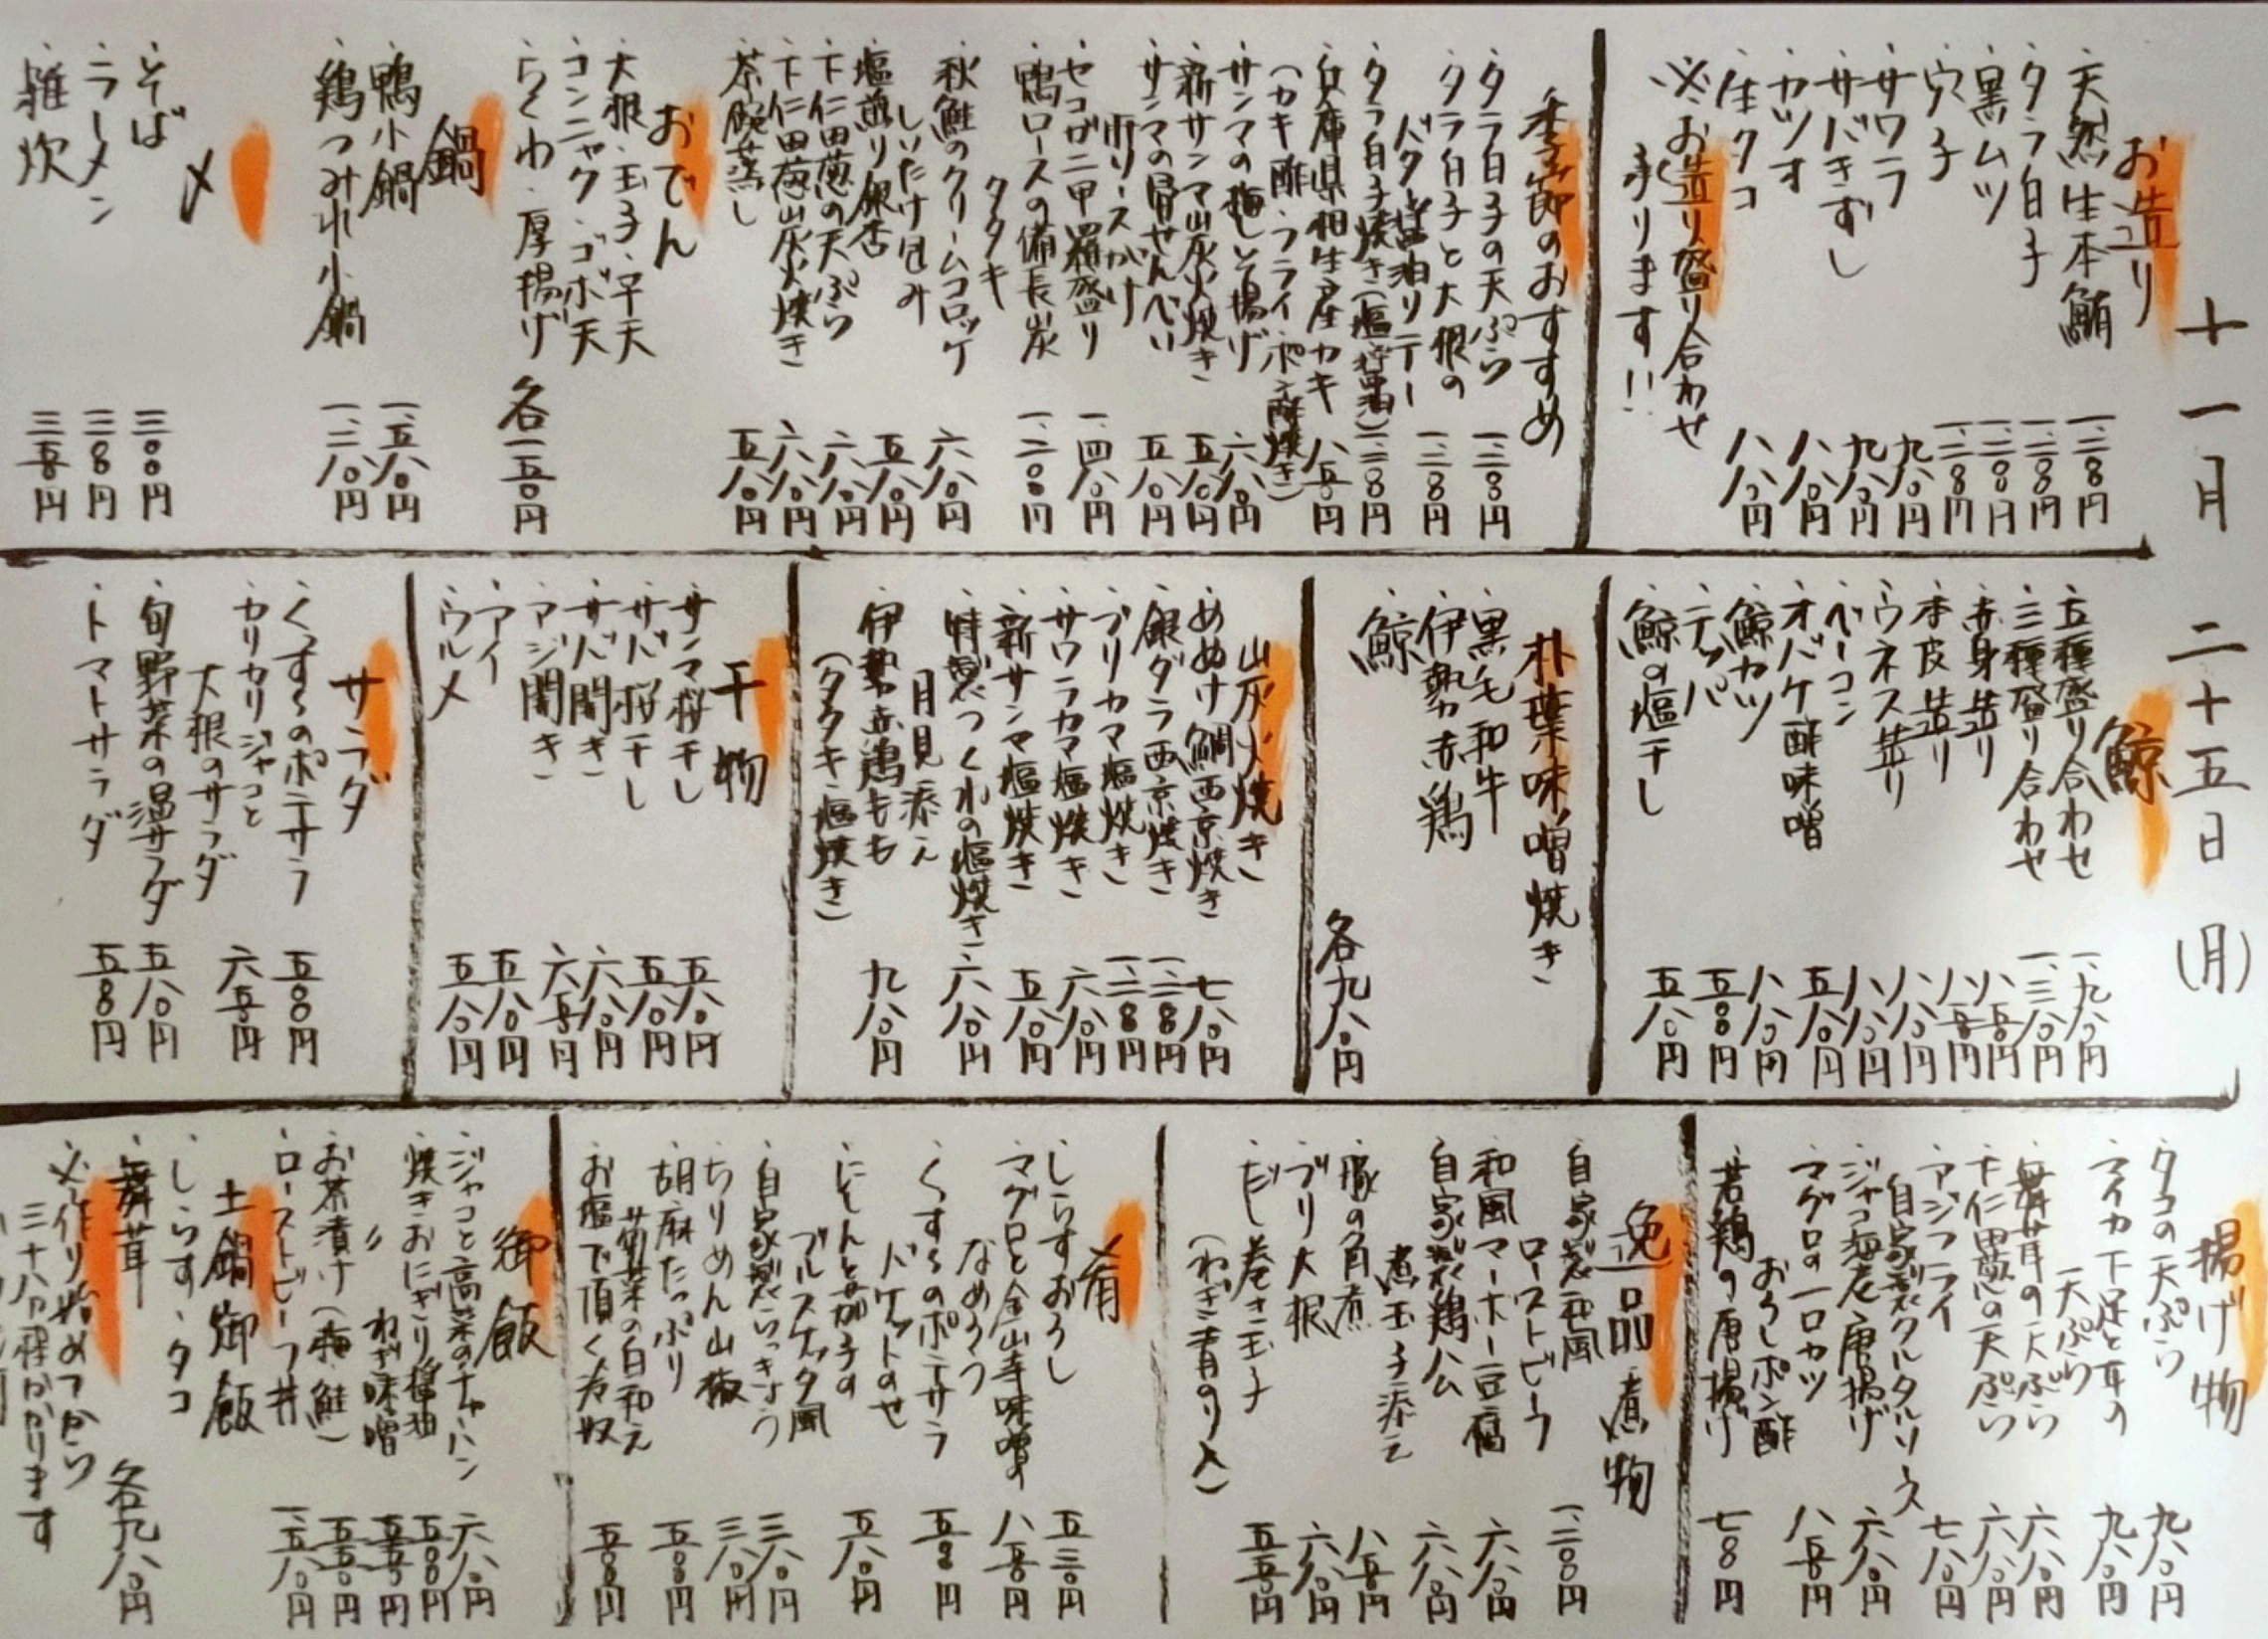 十一月二十五日(月)
お造り
・天然生本鮪 一、二八〇円
・タラ白子 一、二八〇円
・黒ムツ 一、二八〇円
・穴子 一、二八〇円
・サワラ 九八〇円
・サバきずし 九八〇円
・カツオ 八八〇円
・生タコ 八八〇円
※お造り盛り合わせ
承ります!!
季節のおすすめ
・タラ白子の天ぷら
・タラ白子と大根の
バター醤油ソテー
・タラ白子焼き(塩・醤油)
・兵庫県相生産カキ 八五〇円
(カキ酢・フライ・ポン酢焼き)
・サンマの梅しそ揚げ 六八〇円
・新サンマ炭火焼き 五八〇円
・サンマの骨せんべい 五八〇円
・セコガニ甲羅盛り 一、四八〇円
・鴨ロースの備長炭 一、二〇〇円
タタキ
・秋鮭のクリームコロッケ 六八〇円
しいたけ包み
・塩煎り銀杏 五八〇円
・下仁田葱の天ぷら 六八〇円
・下仁田葱炭火焼き 六八〇円
・茶碗蒸し 五八〇円
おでん
・大根・玉子・平天
・コンニャク・ゴボ天
・ちくわ・厚揚げ 各一五〇円
鍋
・鴨小鍋 一、五八〇円
・鶏つみれ小鍋 一、二八〇円
〆
・そば 三〇〇円
・ラーメン 三〇〇円
・雑炊 三五〇円
鯨
・五種盛り合わせ 一、九八〇円
・三種盛り合わせ 一、三八〇円
・赤身造り 八五〇円
・本皮造り 八五〇円
・ウネス造り 八八〇円
・ベーコン 八八〇円
・オバケ酢味噌 五八〇円
・鯨カツ 八八〇円
・テッパ 五八〇円
・鯨の塩干し 五八〇円
朴葉味噌焼き
・黒毛和牛
・伊勢赤鶏
・鯨 各九八〇円
炭火焼き
・めぬけ鯛西京焼き 七八〇円
・銀ダラ西京焼き 一、二八〇円
・ブリカマ塩焼き 一、二八〇円
・サワラカマ塩焼き 六八〇円
・新サンマ塩焼き 五八〇円
・特製つくねの塩焼き 六八〇円
月見添え
・伊勢赤鶏もも 九八〇円
(タタキ・塩焼き)
干物
・サンマ桜干し 五八〇円
・サバ桜干し 五八〇円
・サバ開き 六八〇円
・アジ開き 六五〇円
・アイ 五八〇円
・ウルメ 五八〇円
サラダ
・くずし〜のポテサラ 五〇〇円
・カリカリジャコと 六五〇円
大根のサラダ
・旬野菜の温サラダ 五八〇円
・トマトサラダ 五五〇円
揚げ物
・タコの天ぷら 九八〇円
・アイカ下足と耳の 九八〇円
天ぷら
・舞茸の天ぷら 六八〇円
・下仁田葱の天ぷら 六八〇円
・アジフライ 七八〇円
自家製タルタルソース
・ジャコ海老唐揚げ 六八〇円
・マグロの一口カツ 八五〇円
おろしポン酢
・若鶏の唐揚げ 七八〇円
逸品・煮物
・自家製和風 一、二〇〇円
ローストビーフ
・和風マーボー豆腐 六八〇円
・自家製鶏ハム 六八〇円
煮玉子添え
・豚の角煮 八五〇円
・ブリ大根 六八〇円
・だし巻き玉子 五五〇円
(ねぎ・青のり入)
肴
・しらすおろし 五三〇円
・マグロと金山寺味噌の 八五〇円
なめろう
・くずし〜のポテサラ 五〇〇円
バケットのせ
・にしんと茄子の 五八〇円
ブルスケッタ風
・自家製らっきょう 三八〇円
・ちりめん山椒 三八〇円
・胡麻たっぷり 五五〇円
菊菜の白和え
・お塩で頂く冷奴 五五〇円
御飯
・ジャコと高菜のチャーハン 六八〇円
・焼きおにぎり醤油 五〇〇円
〃 ねぎ味噌 五五〇円
・お茶漬け(梅・鮭) 五五〇円
・ローストビーフ丼 一、五八〇円
土鍋御飯
・しらす・タコ
・舞茸 各九八〇円
※作り始めてから
三十八分程かかります